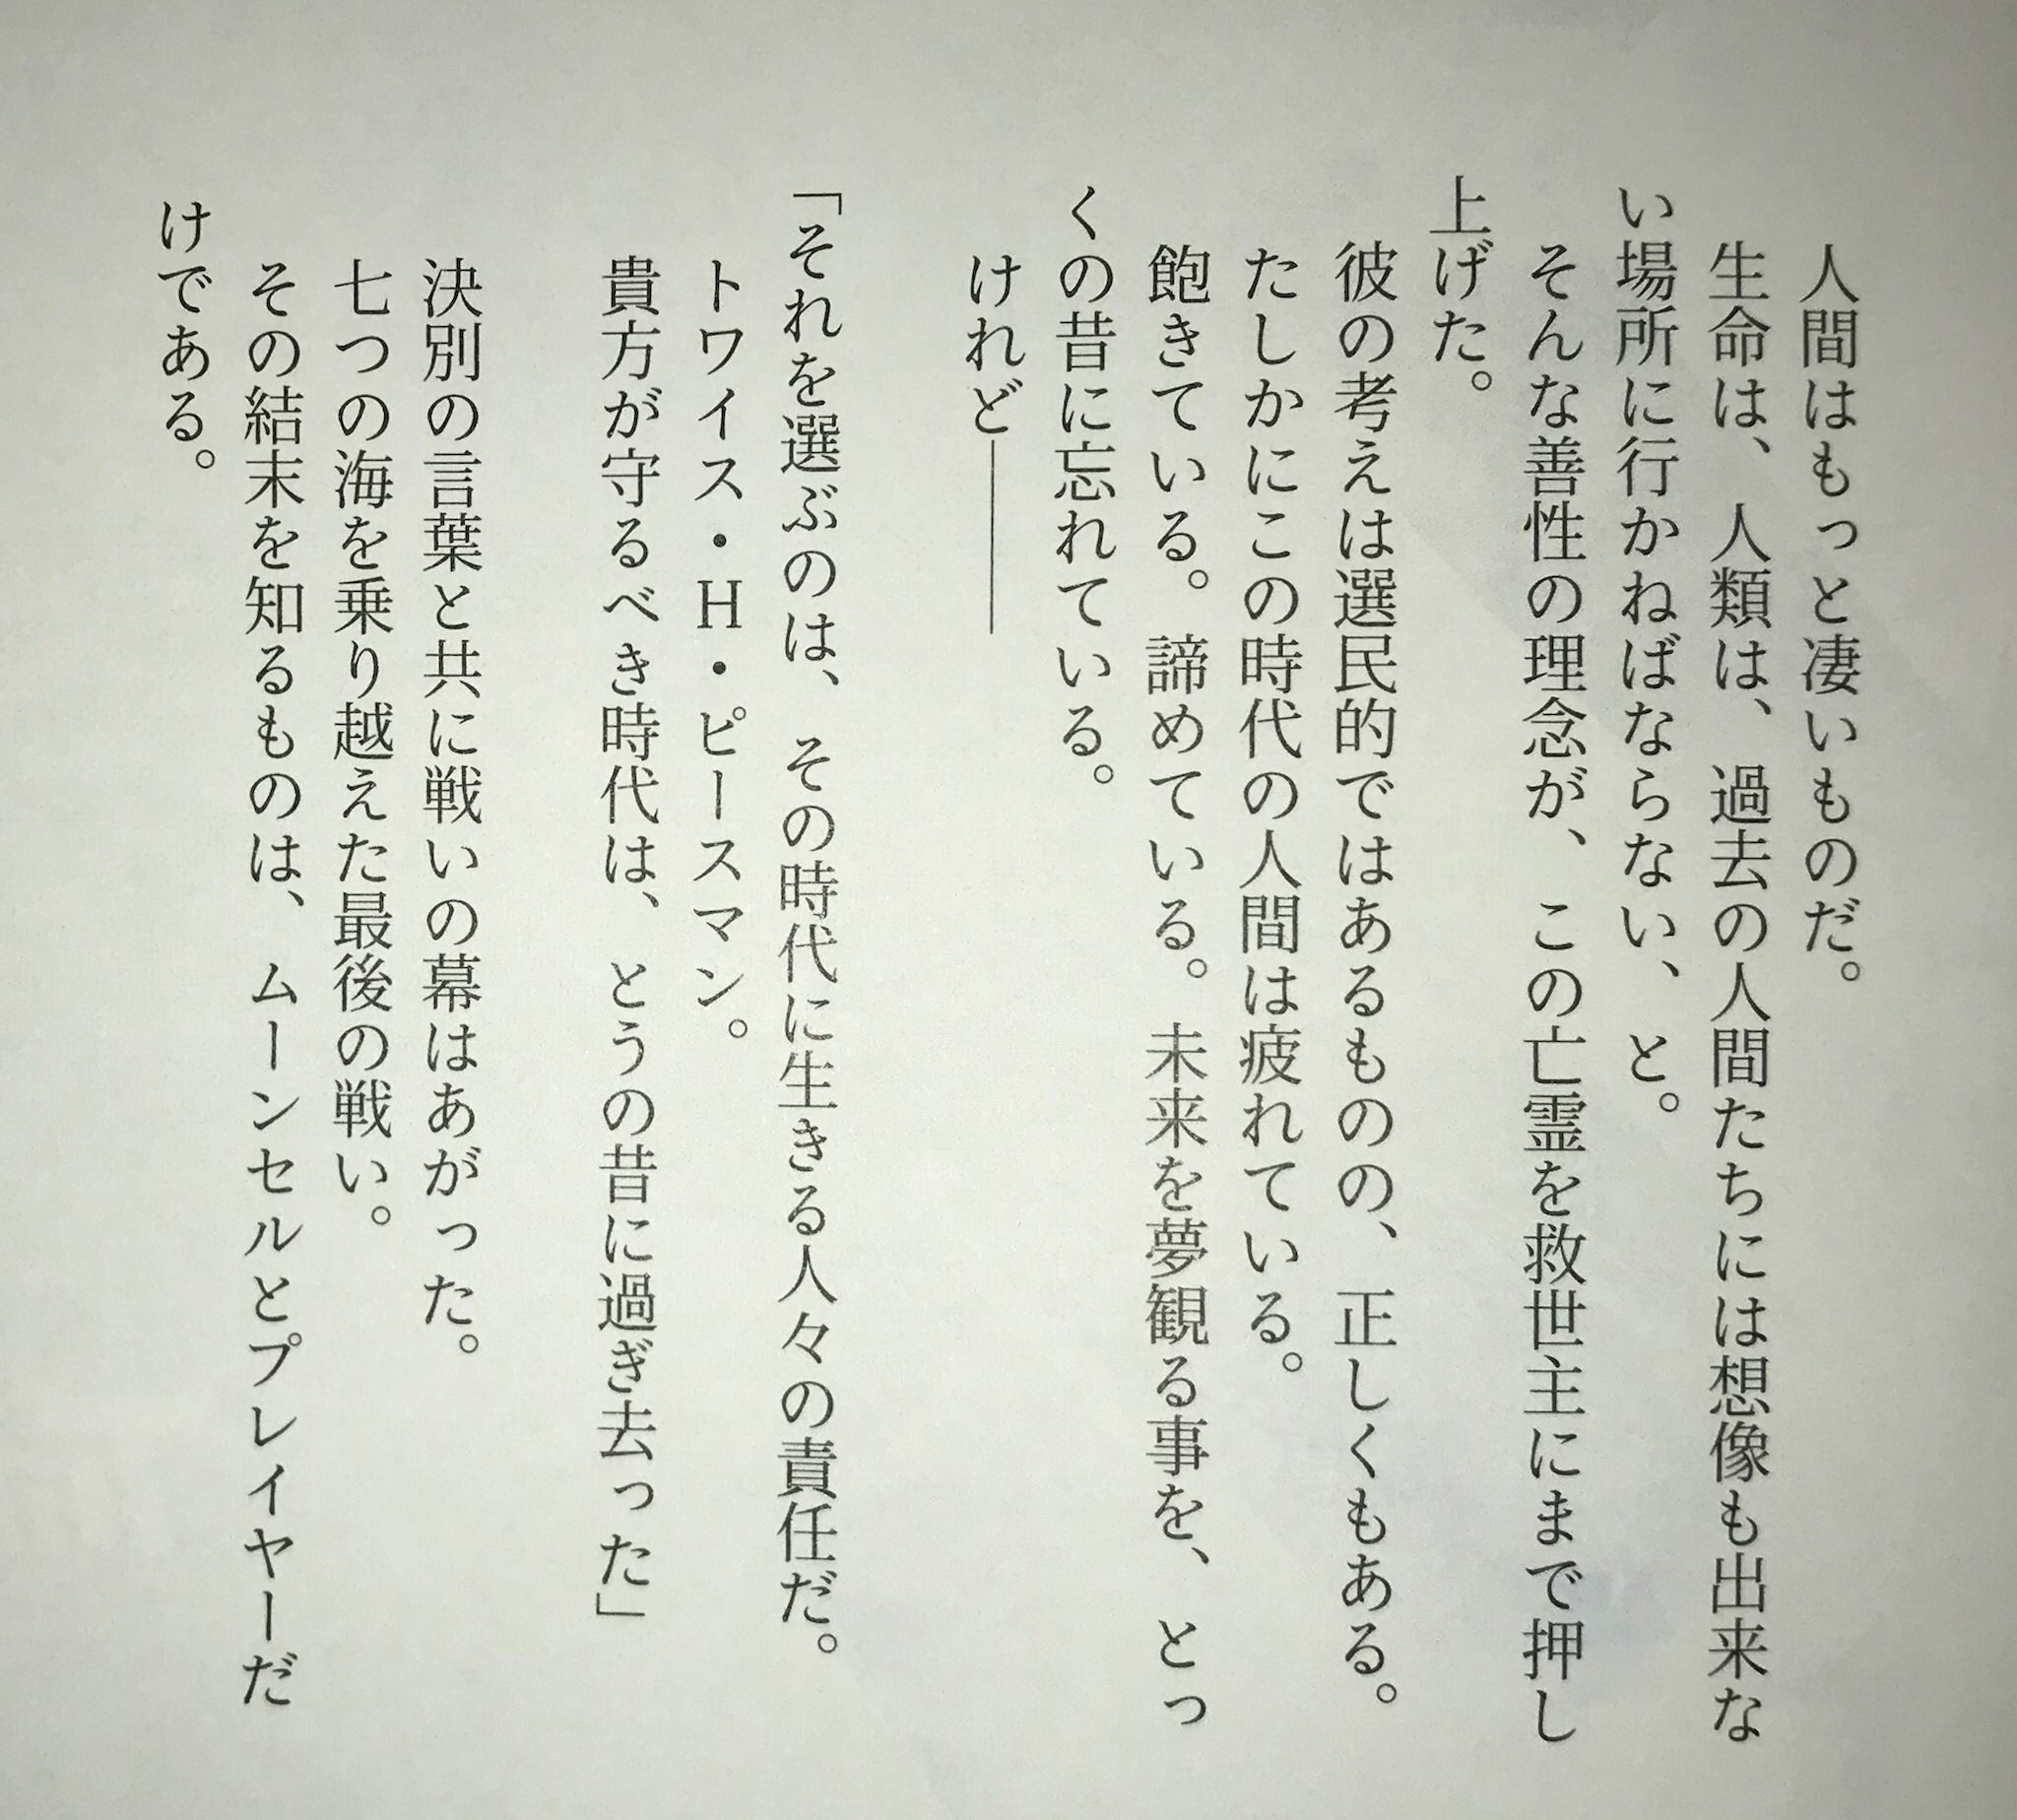 人間はもっと凄いものだ。
生命は、人類は、過去の人間たちには想像も出来な
い場所に行かねばならない、と。
そんな善性の理念が、この亡霊を救世主にまで押し
上げた。
彼の考えは選民的ではあるものの、正しくもある。
たしかにこの時代の人間は疲れている。
飽きている。諦めている。未来を夢観る事を、とっ
くの昔に忘れている。
けれど――
「それを選ぶのは、その時代に生きる人々の責任だ。
トワイス・H・ピースマン。
貴方が守るべき時代は、とうの昔に過ぎ去った」
決別の言葉と共に戦いの幕はあがった。
七つの海を乗り越えた最後の戦い。
その結末を知るものは、ムーンセルとプレイヤーだ
けである。